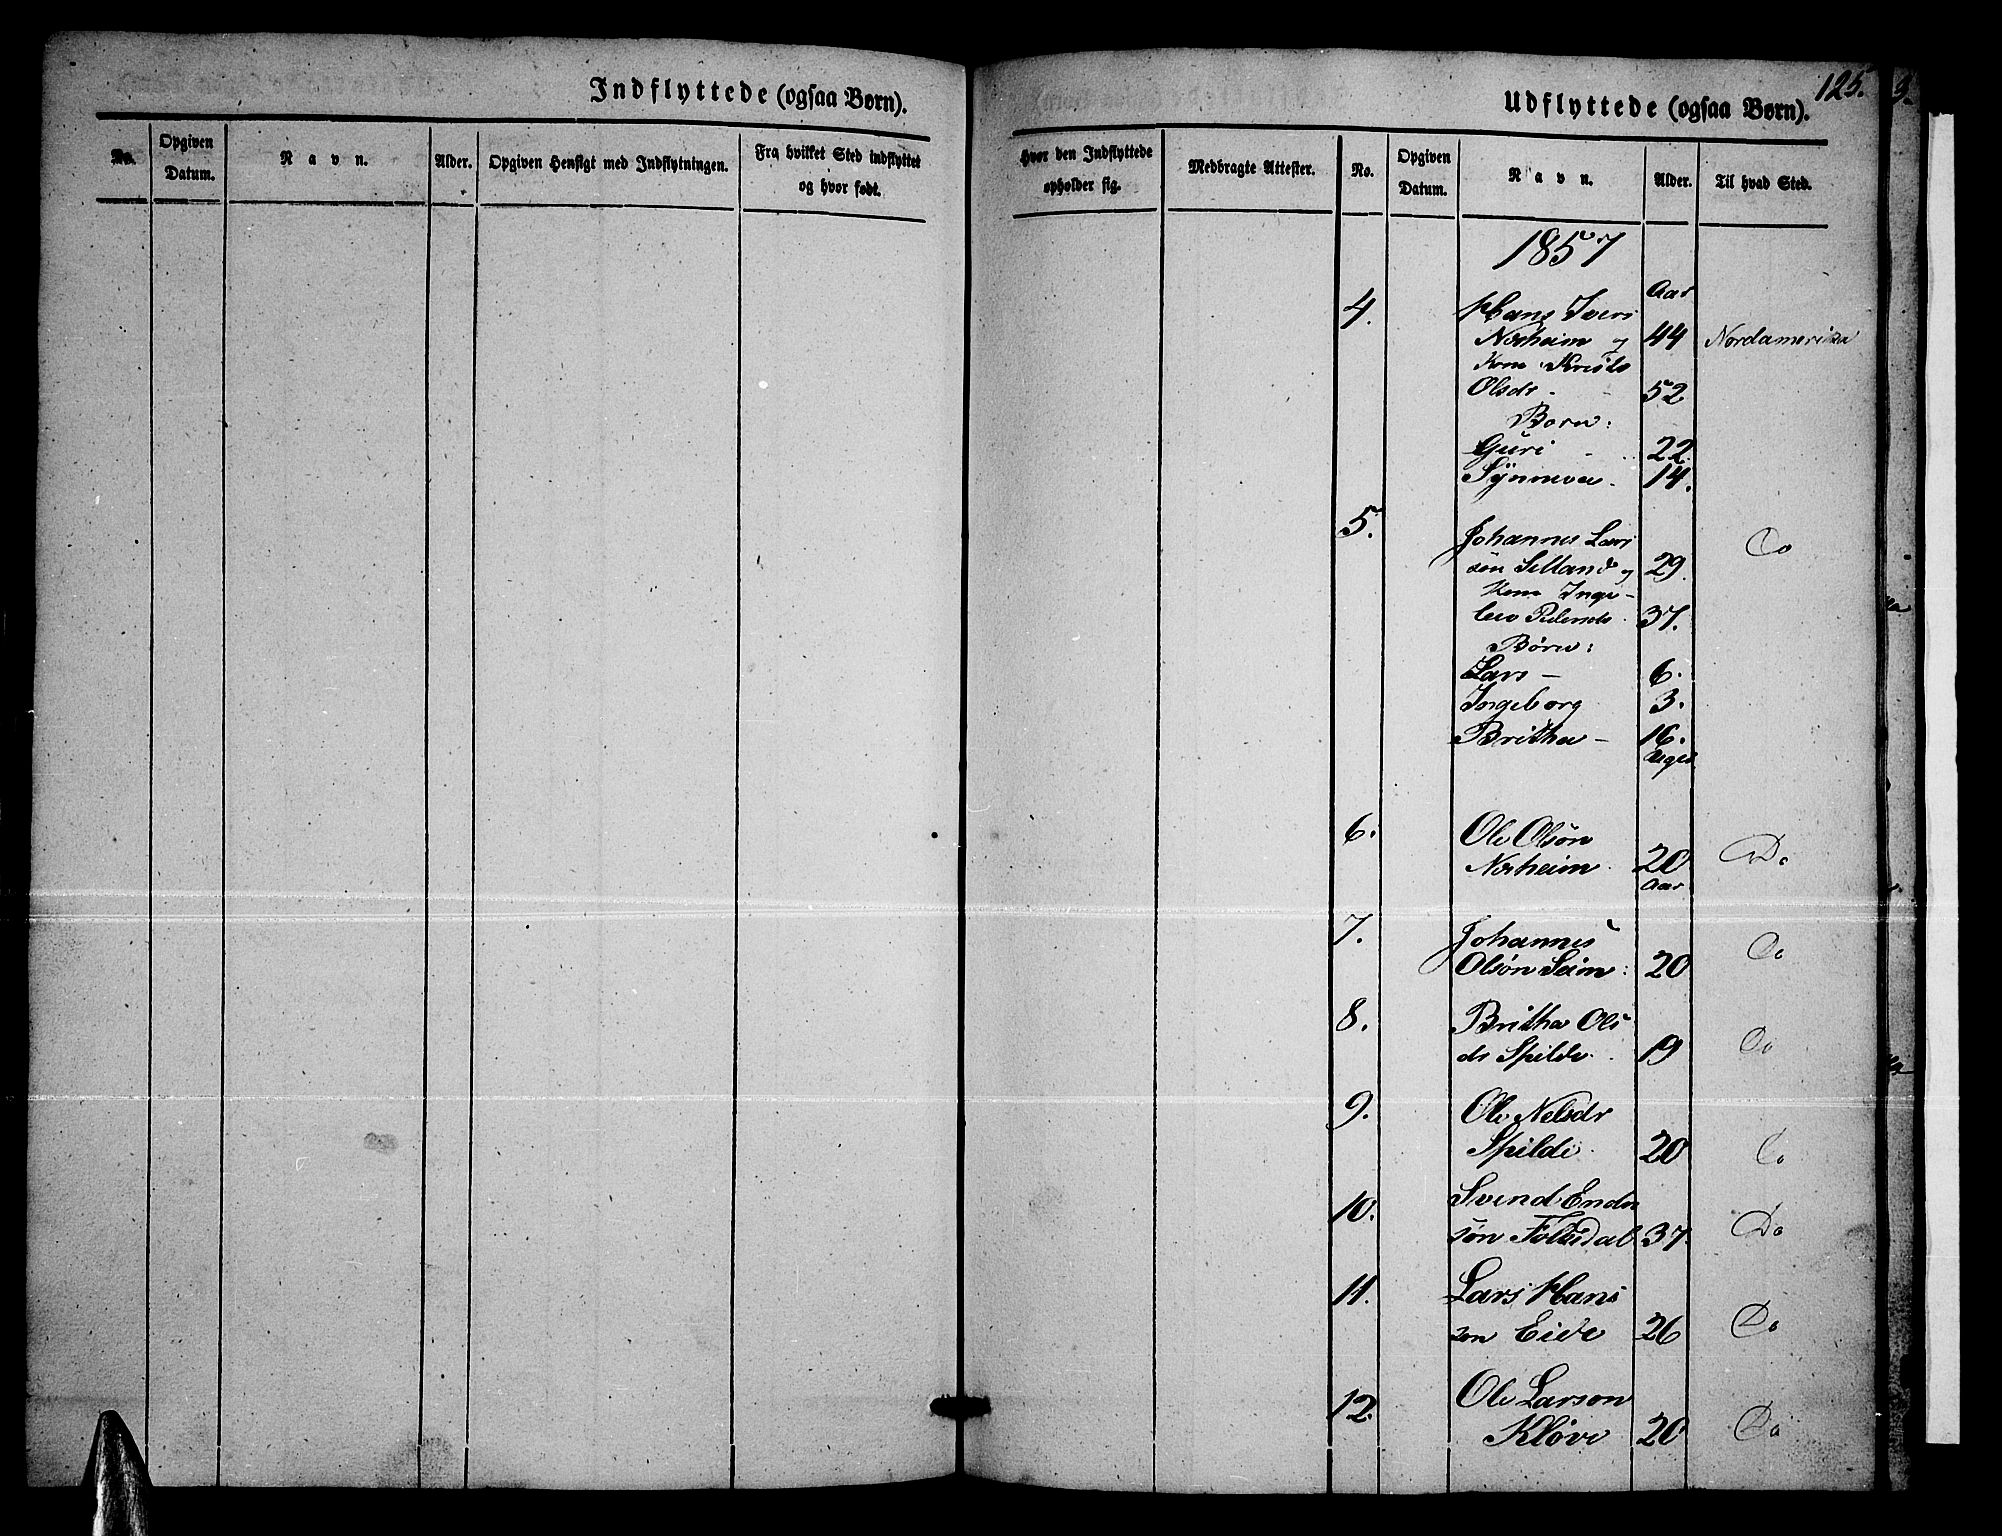 Indflyttede (ogsaa Børn).
No.
Opgiven
Datum.
Navn.
Alder.
Opgiven Hensigt med Indflytningen.
Fra hvilket Sted indflyttet
og hvor født.
125.
3.
Udflyttede (ogsaa Børn).
Hvor den Indflyttede
opholder sig.
Medbragte Attester.
No.
Opgiven
Datum.
Navn.
Alder.
Til hvad Sted.
1857
Aar
4. Hans Ivers
Norheim og 44 Nordamerika
Kone Kristi
Olsdr - 52
Børn:
Guri - 22.
Synneva. 14.
5. Johannes Lars Do
søn Selland og 29.
Kone Inge-
37.
Børn:
Lars - 6.
Ingeborg 3.
Britha - 16.
Uger
6. Ole Olsøn Do
Norheim. 20
Aar
7. Johannes Do
Olsøn Seim: 20
8. Britha Ols Do
dr Spilde. 19
9. Ole Nelsdr
Spilde. 20 Do
10. Svend Enda
søn Folkedal 37. Do
11. Lars Hans
søn Eide 26 Do
12. Ole Larson
Kløve 20 Do